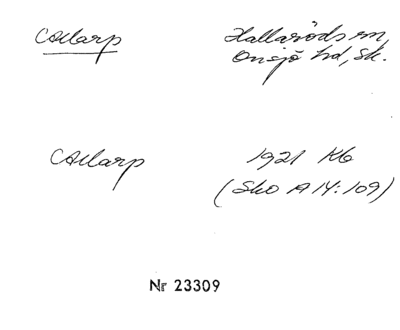 Callarp Hallaröds sn,
Onsjö hd, Sk.
Callarp 1921 Kb
(Sko A 14:109)
Nr 23309